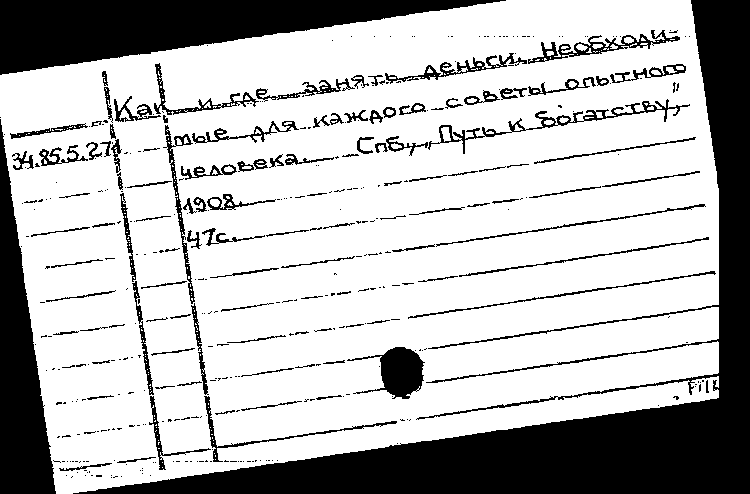 Как и где занять деньги. Необходи-
мые для каждого советы опытного
34.85.5.271
человека. Спб., „Путь к богатству",
1908.
47с.